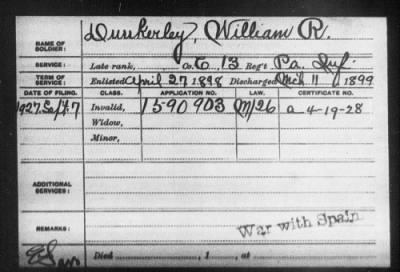 NAME OF SOLDIER: Dunkerley, William R.
SERVICE: Late rank, Co. E, 13 Reg't Pa. Inf.
TERM OF SERVICE: Enlisted April 27 1898 Discharged Mch 11, 1899
DATE OF FILING. CLASS. APPLICATION NO. LAW. CERTIFICATE NO.
1927, Sept 7 Invalid, 1590903 M126 a 4-19-28
Widow,
Minor,
ADDITIONAL SERVICES:
REMARKS: War with Spain
Died , 1 , at